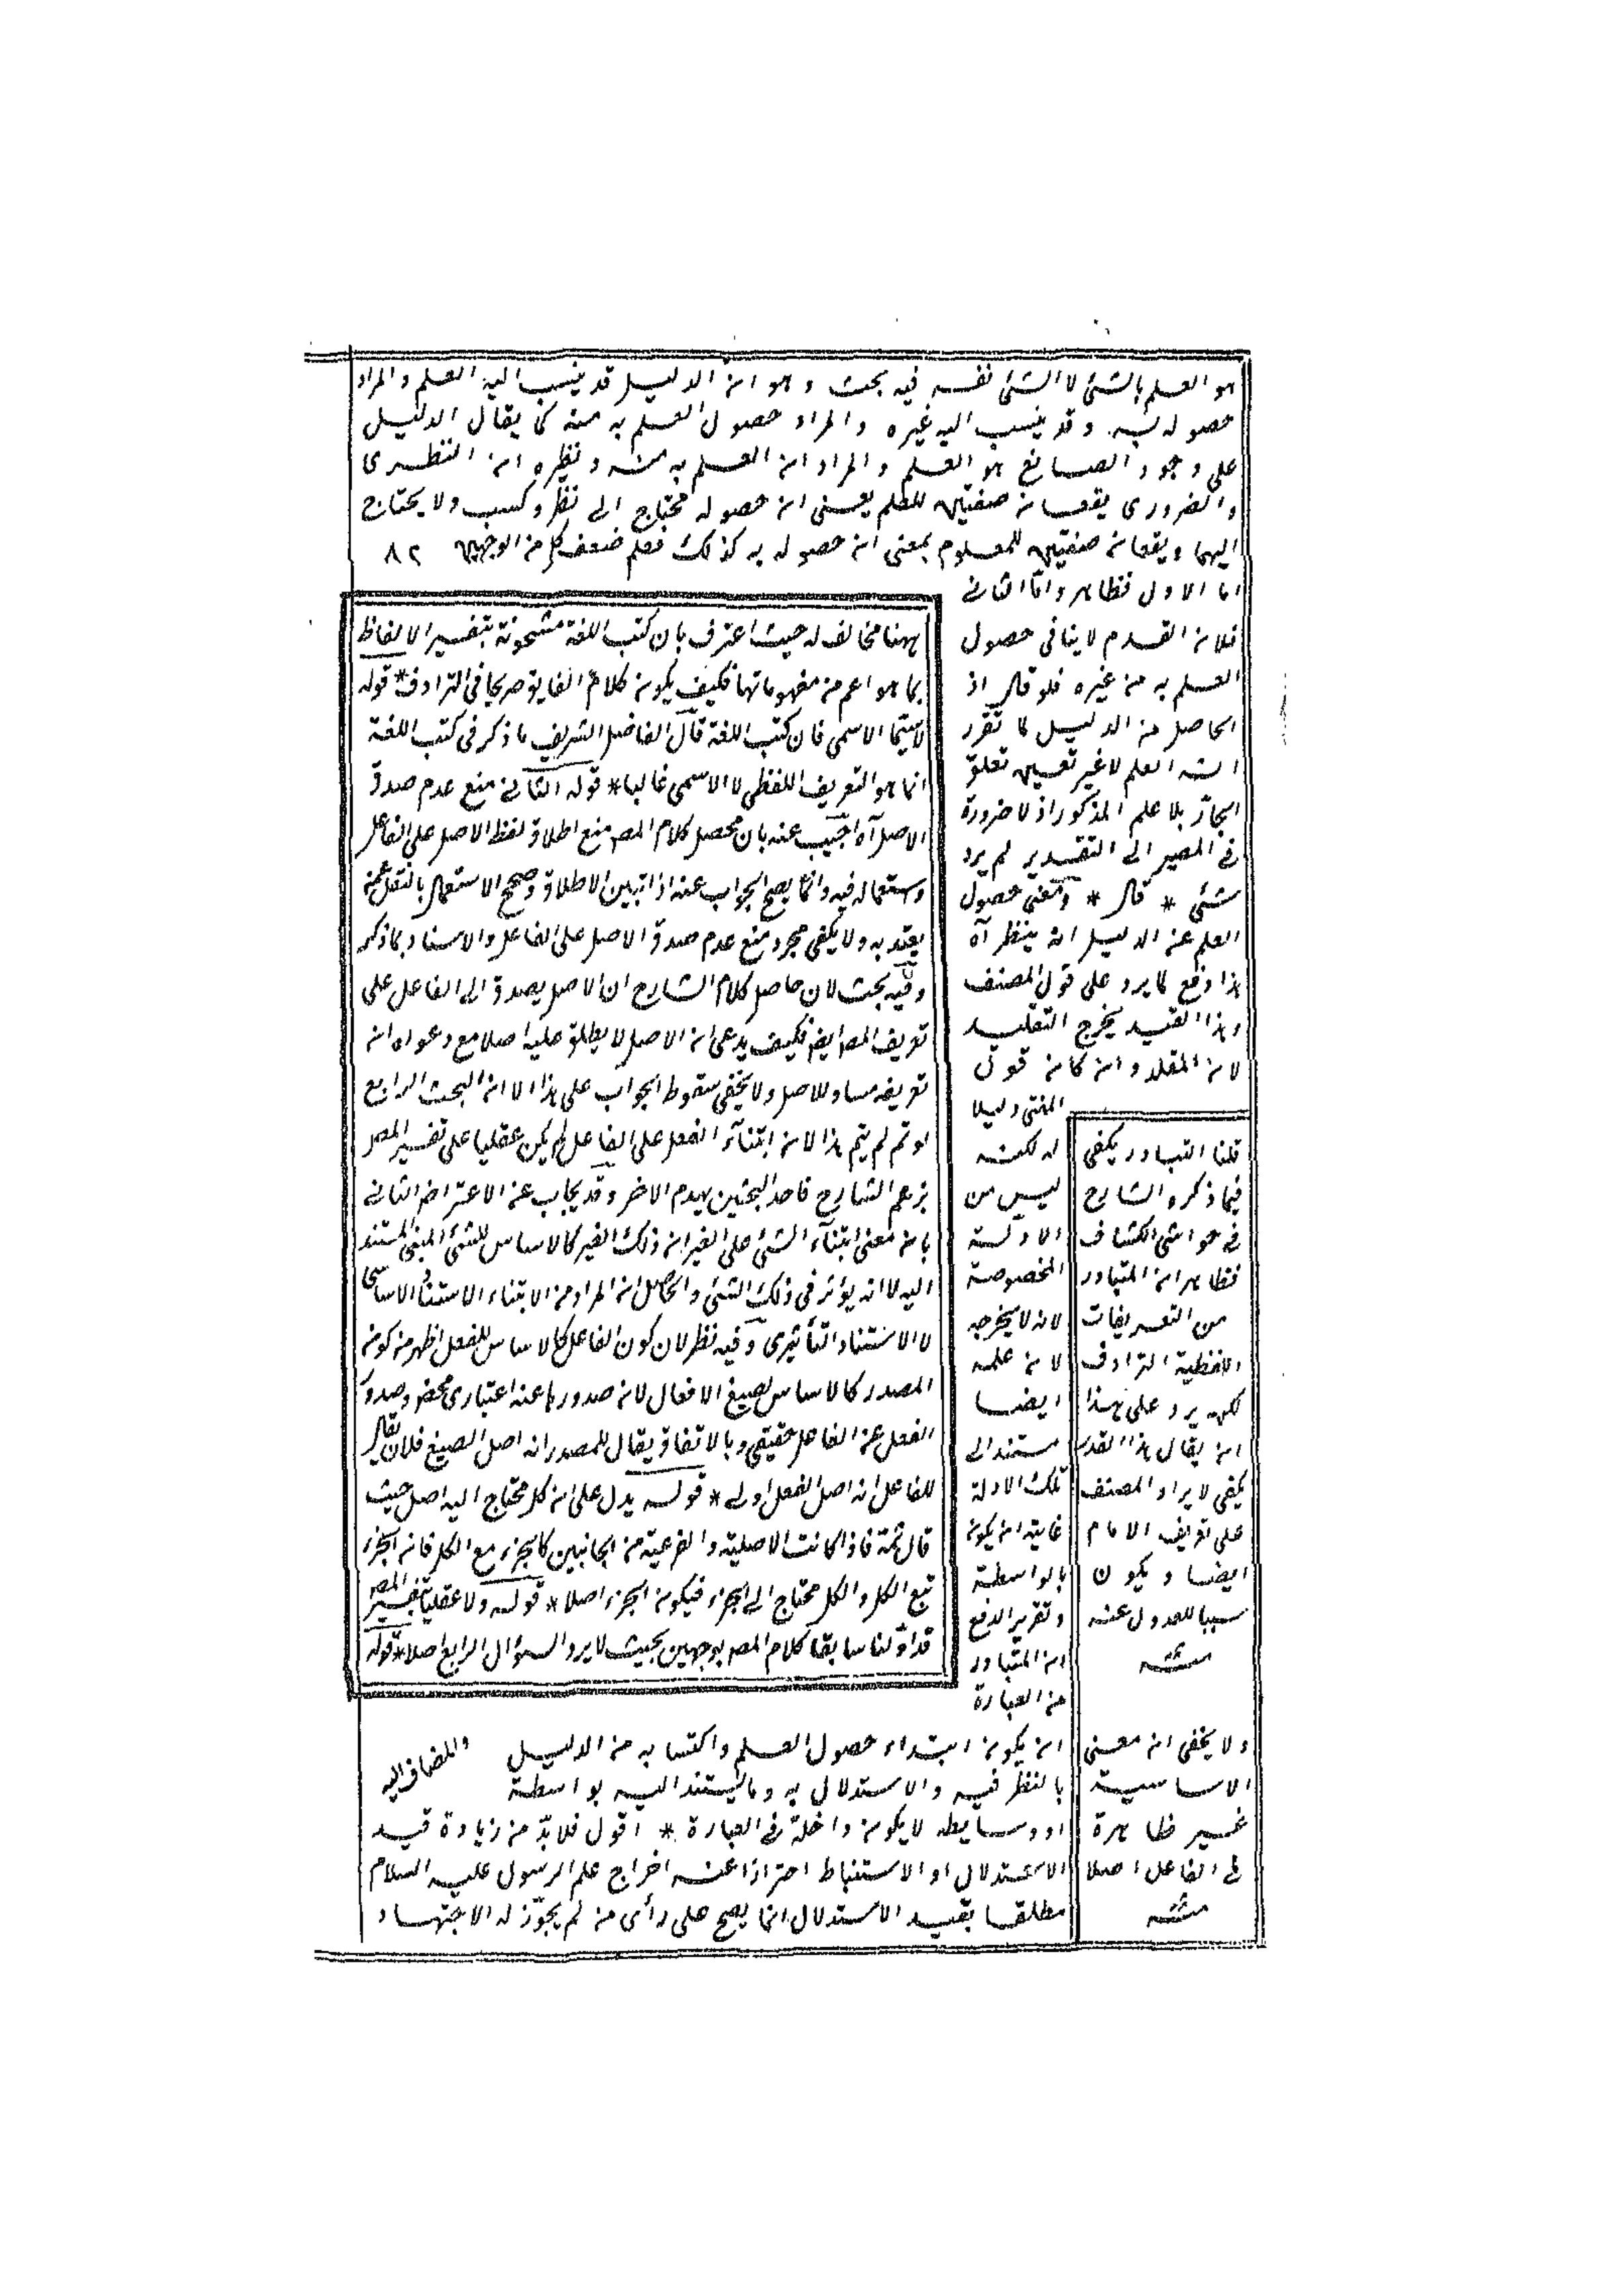 هو العلم بالشئ لا الشئ نفسه فيه بحث وهو ان الدليل قد ينسب اليه العلم والمراد
حصوله به وقد ينسب اليه غيره والمراد حصول العلم به منه كما يقال الدليل
على وجود الصانع هو العلم والمراد ان العلم به منه ونظيره ان النظرى
والضرورى يقعان صفتين للعلم يعنى ان حصوله محتاج الى نظر وكسب ولا يحتاج
اليهما ويقعان صفتين للمعلوم بمعنى ان حصوله به كذلك فعلم ضعف كل من الوجهين ٨٢
اما الاول فظاهر واما الثانى
فلان القدم لا ينافى حصول
العلم به من غيره فلو قال اذ
الحاصل من الدليل لما تقرر
انه العلم لا غير تعين تعلق
الجار بلا علم المذكور اذ لا ضرورة
فى المصير الى التقدير لم يرد
شئى * قال * ومعنى حصول
العلم عن الدليل انه ينظر آه
هذا دفع لما يرد على قول المصنف
وهذا القيد يخرج التقليد
لان المقلد وان كان قول
المفتى دليلا
له لكنه
ليس من
الادلة
المخصوصة
لانه لا يخرجه
لان علمه
ايضا
مستند الى
تلك الادلة
غايته ان يكون
بالواسطة
وتقرير الدفع
ان المتبادر
من العبارة
ان يكون ابتداء حصول العلم واكتسابه من الدليل
بالنظر فيه والاستدلال به وما يستند اليه بواسطة
او وسايط لا يكون داخلة فى العبارة * اقول فلا بد من زيادة قيد
الاستدلال او الاستنباط احترازا عنه اخراج علم الرسول عليه السلام
مطلقا بقيد الاستدلال انما يصح على رأى من لم يجوز له الاجتهاد
والمضاف اليه
ههنا مخالف له حيث اعترف بان كتب اللغة مشحونة بتفسير الالفاظ
بما هو اعم من مفهوماتها فكيف يكون كلام الفايق صريحا فى الترادف * قوله
لا سيما الاسمى فان كتب اللغة قال الفاضل الشريف ما ذكر فى كتب اللغة
انما هو التعريف اللفظى لا الاسمى غالبا * قوله الثانى منع عدم صدق
الاصل آه اجيب عنه بان محصل كلام المص منع اطلاق لفظ الاصل على الفاعل
واستعماله فيه وانما يصح الجواب عنه اذا تبين الاطلاق وصحح الاستعمال بالنقل عمن
يعتد به ولا يكفى مجرد منع عدم صدق الاصل على الفاعل والاسناد بما ذكره
وفيه بحث لان حاصل كلام الشارح ان الاصل يصدق الى الفاعل على
تعريف المص ايضا فكيف يدعى ان الاصل لا يطلق عليه اصلا مع دعواه ان
تعريفه مساو للاصل ولا يخفى سقوط الجواب على هذا الا ان البحث الرابع
لو تم لم يتم هذا لان ابتناء الفعل على الفاعل لم يكن عقليا على تفسير المص
بزعم الشارح فاحد البحثين يهدم الاخر وقد يجاب عن الاعتراض الثانى
بان معنى ابتناء الشئ على الغير ان ذلك الغير كالاساس للشئ المبنى المستند
اليه لا انه يؤثر فى ذلك الشئ والحاصل ان المراد من الابتناء الاستناد الاساسى
لا الاستناد التأثيرى وفيه نظر لان كون الفاعل كالاساس للفعل اظهر من كون
المصدر كالاساس لصيغ الافعال لان صدورها عنه اعتبارى محض وصدور
الفعل عن الفاعل حقيقى وبالاتفاق يقال للمصدر انه اصل الصيغ فلان يقال
للفاعل انه اصل الفعل اولى * قوله يدل على ان كل محتاج اليه اصل حيث
قال ثمة فاذا كانت الاصلية والفرعية من الجانبين كالجزء مع الكل فان الجزء
تبع الكل والكل محتاج الى الجزء فيكون الجزء اصلا * قوله ولا عقليا بتفسير المص
قد اولنا سابقا كلام المص بوجهين بحيث لا يرد السؤال الرابع اصلا * قوله
قلنا التبادر يكفى
فيما ذكره الشارح
فى حواشى الكشاف
فظاهر ان المتبادر
من التعريفات
اللفظية الترادف
لكن يرد على هذا
ان يقال هذا القدر
يكفى لايراد المصنف
على تعريف الامام
ايضا ويكون
سببا للعدول عنه
منه
ولا يخفى ان معنى
الاساسية
غير ظاهرة
فى الفاعل اصلا
منه